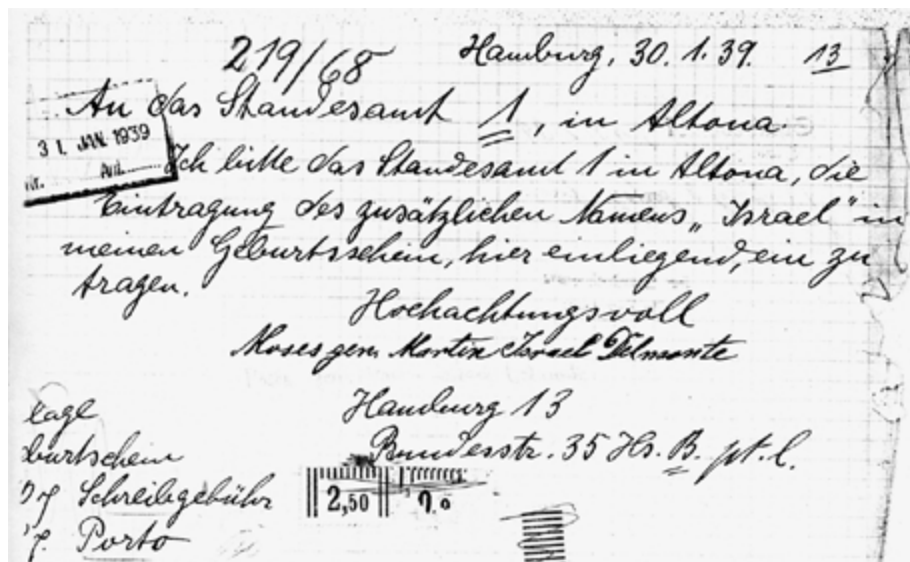 219/68 Hamburg, 30.1.39. 13
An das Standesamt 1, in Altona
31. JAN. 1939
Ich bitte das Standesamt 1 in Altona, die
Eintragung des zusätzlichen Namens „Israel" in
meinen Geburtsschein, hier einliegend, ein zu
tragen.
Hochachtungsvoll
Moses gen. Martin Israel Delmonte
Hamburg 13
Bundesstr. 35 Hs. B. pt. l.
lage
burtschein
Schreibgebühr
Porto
2,50